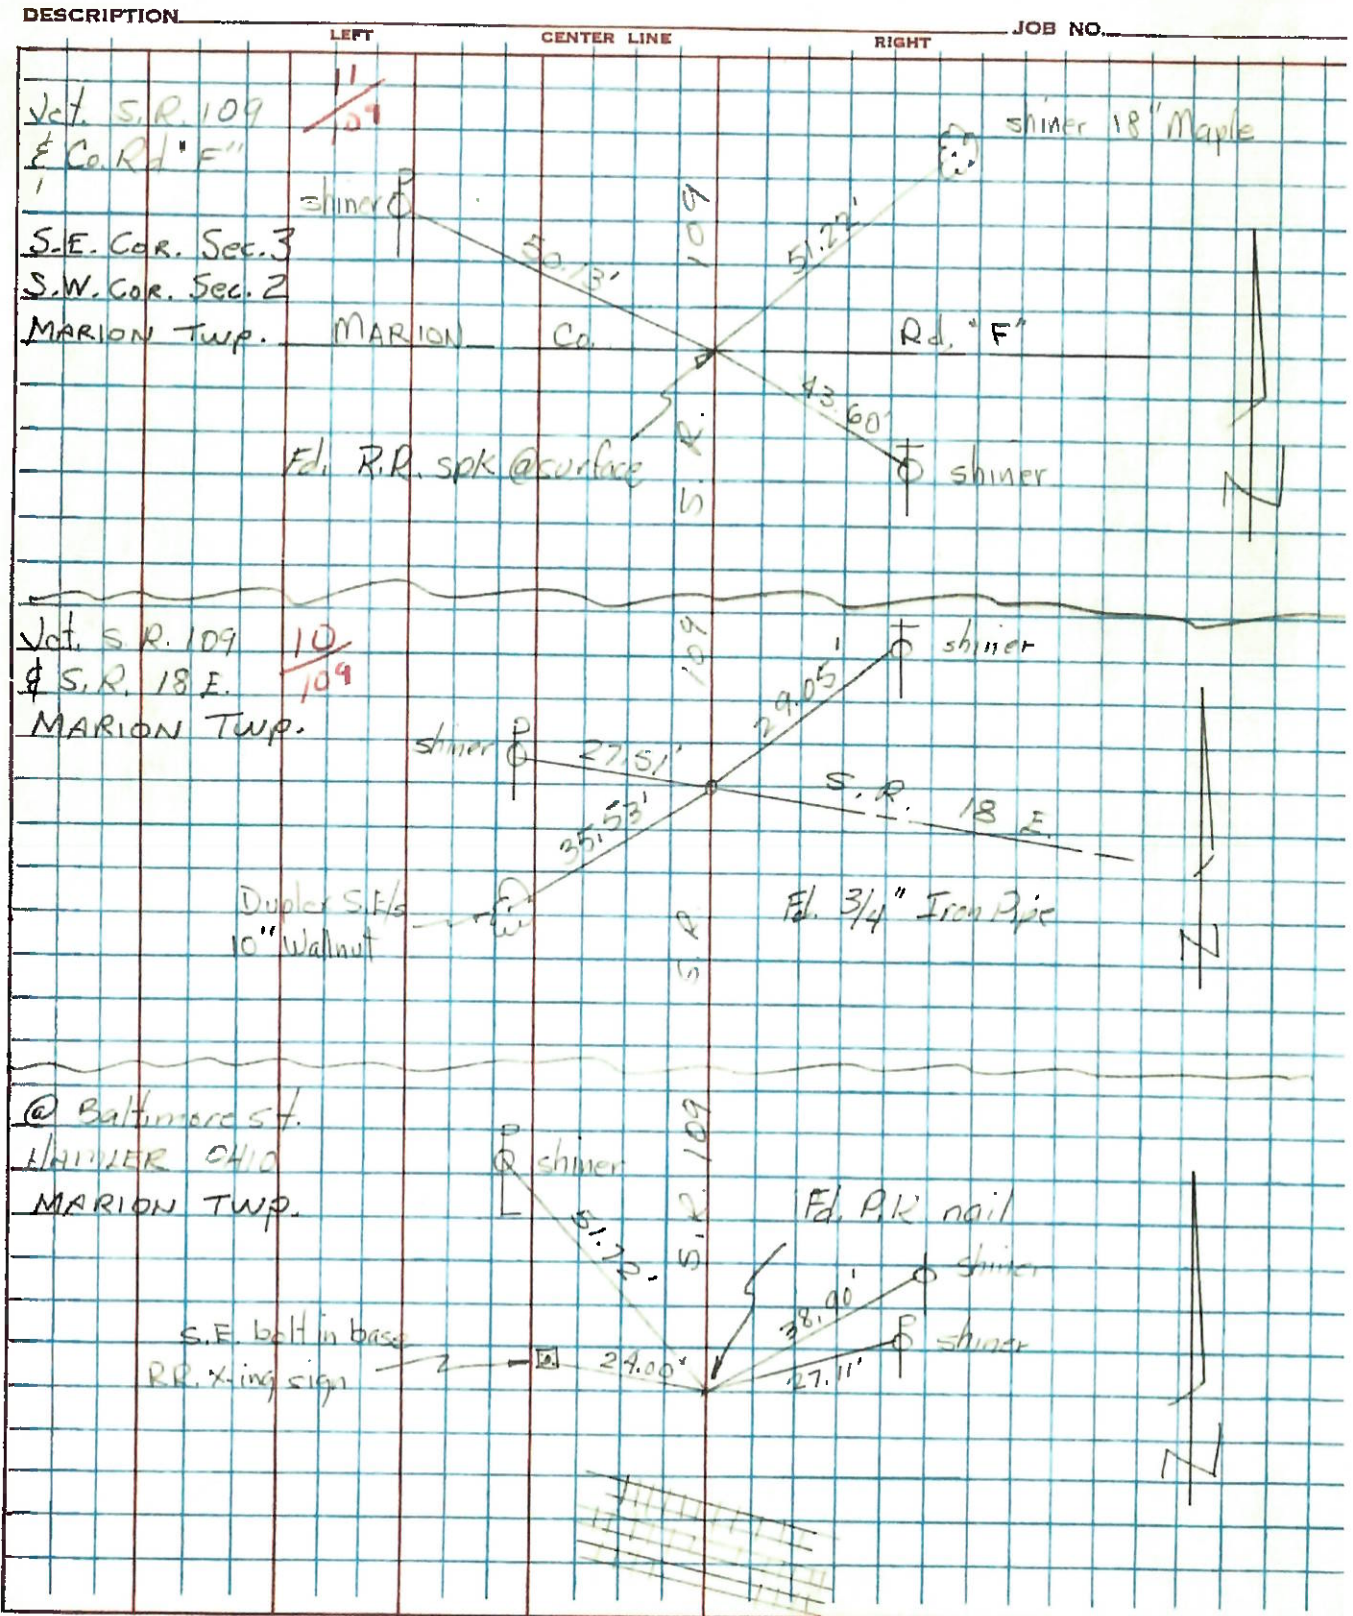 DESCRIPTION
JOB NO.
LEFT
CENTER LINE
RIGHT
Jct. S.R. 109
& Co. Rd "F"
11/109
S.E. COR. Sec. 3
S.W. COR. Sec. 2
MARION TWP.
shiner
shiner 18" Maple
50.13'
109
51.22'
MARION Co. Rd. "F"
43.60'
S. R.
Fd. R.R. spk @ surface
shiner
N
Jct. S.R. 109
& S.R. 18 E.
MARION TWP.
10/109
109
shiner
29.05'
shiner
27.51'
S. R. 18 E.
35.53'
S.R.
10" Wallnut
Fd. 3/4" Iron Pipe
N
@ Baltimore St.
HAMLER OHIO
MARION TWP.
shiner
S.R. 109
Fd. P.K. nail
shiner
38.90'
shiner
27.11'
S.E. bolt in base
RR. X-ing sign
24.00'
N